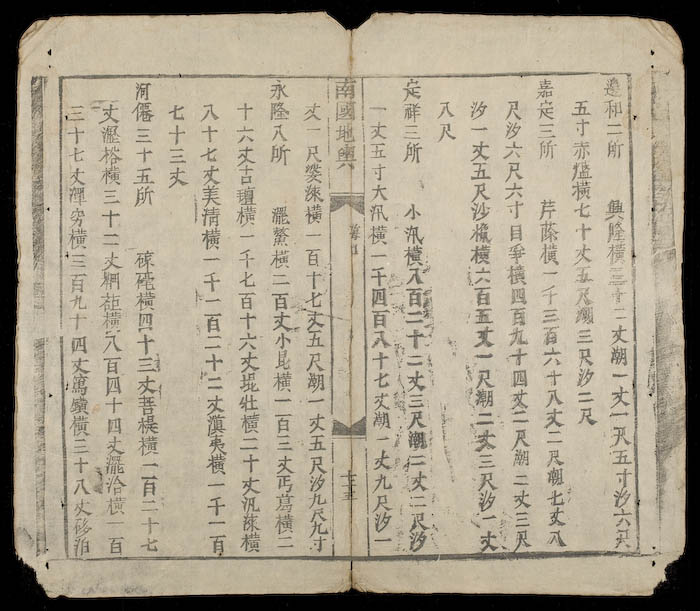 邉和二所 興隆橫三十二丈潮一丈一尺五寸汐六尺
五寸赤爁橫七十丈五尺潮三尺汐二尺
嘉定三所 芹蒢橫一千三百六十八丈二尺潮七丈八
尺汐六尺六寸目爭橫四百九十四丈二尺潮二丈三尺
汐一丈五尺沙橫六百五丈一尺潮二丈三尺汐一丈
八尺
定祥三所 小汛橫八百二十二丈三尺潮二丈二尺汐
一丈五寸大汛橫一千四百八十七丈潮一丈九尺汐一
南國地輿
十五
丈一尺淶橫一百十七丈五尺潮一丈五尺汐九尺九寸
永隆八所 灑鰲橫二百丈小昆橫一百三丈丐葛橫二
十六丈古瓊橫一千七百十六丈堒牡橫二十丈汎淶橫
八十七丈美清橫一千一百二十二丈滇夷橫一千一百
七十三丈
河僊三十五所 橫四十三丈菩橫一百二十七
丈瀝橫三十二丈橫八百四十四丈灑洽橫一百
三十七丈渾穷橫三百九十四丈萬橫三十八丈砂泊